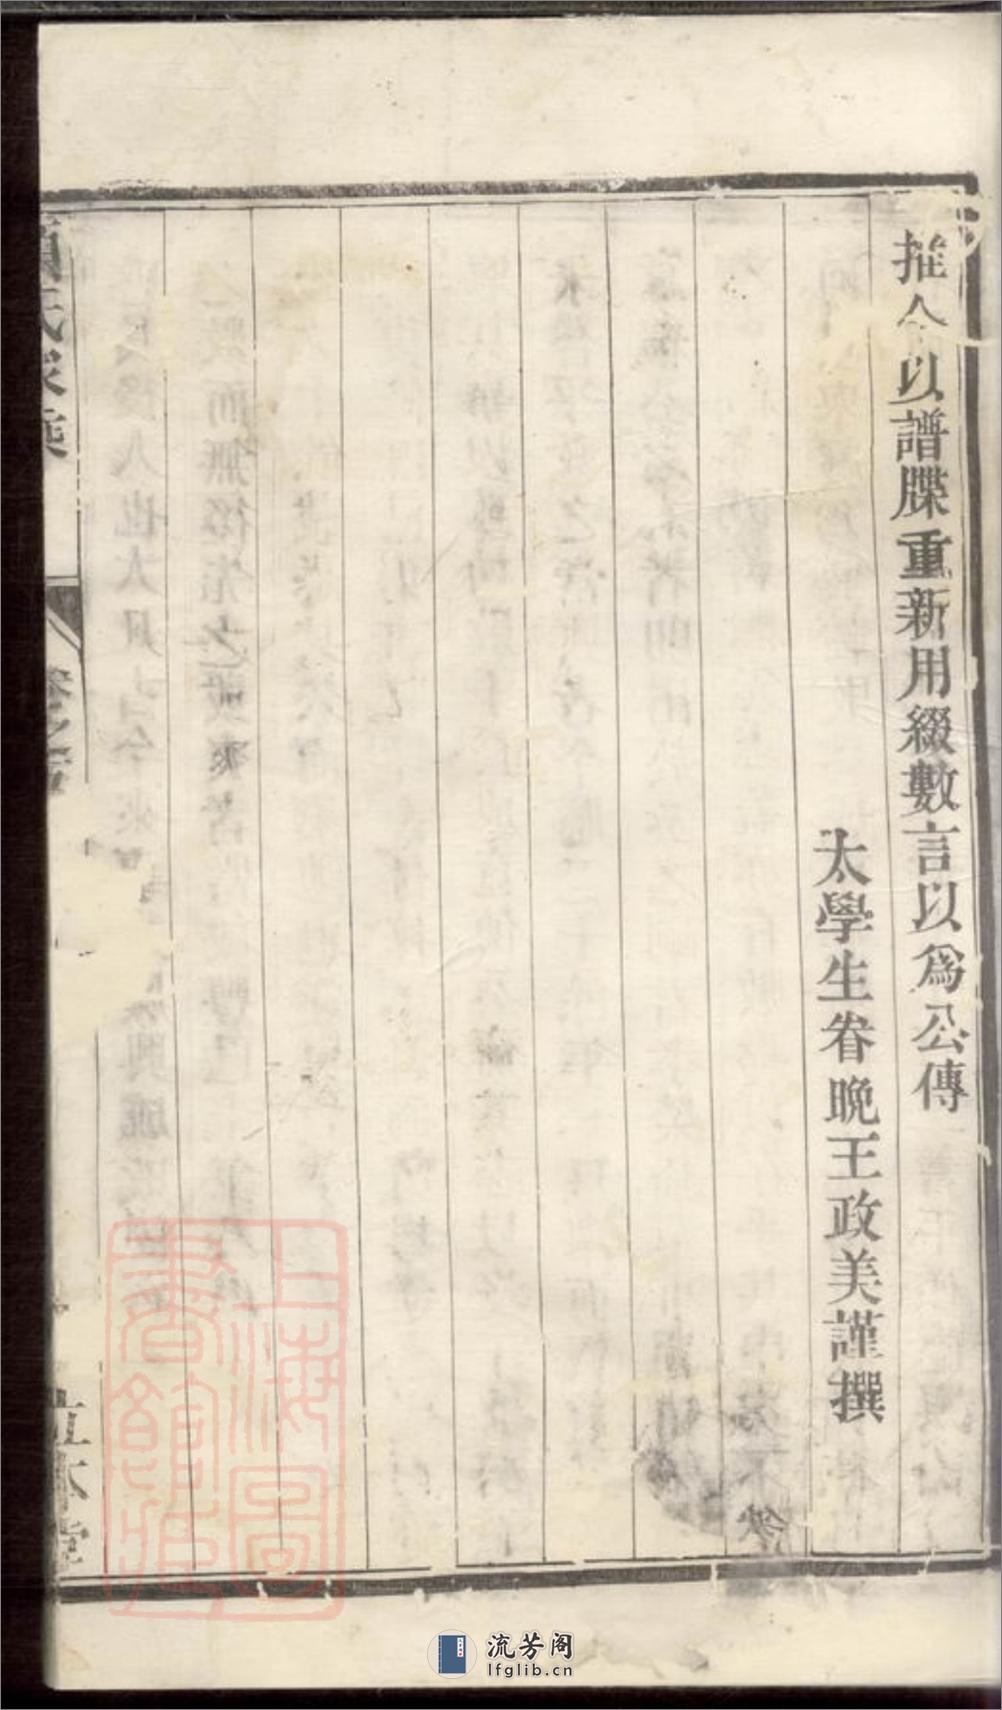 推今以譜牒重新用綴數言以爲公傳
太學生眷晚王政美謹撰
氏家乘
卷之首
上海圖書館藏
流芳阁
lfglib.cn